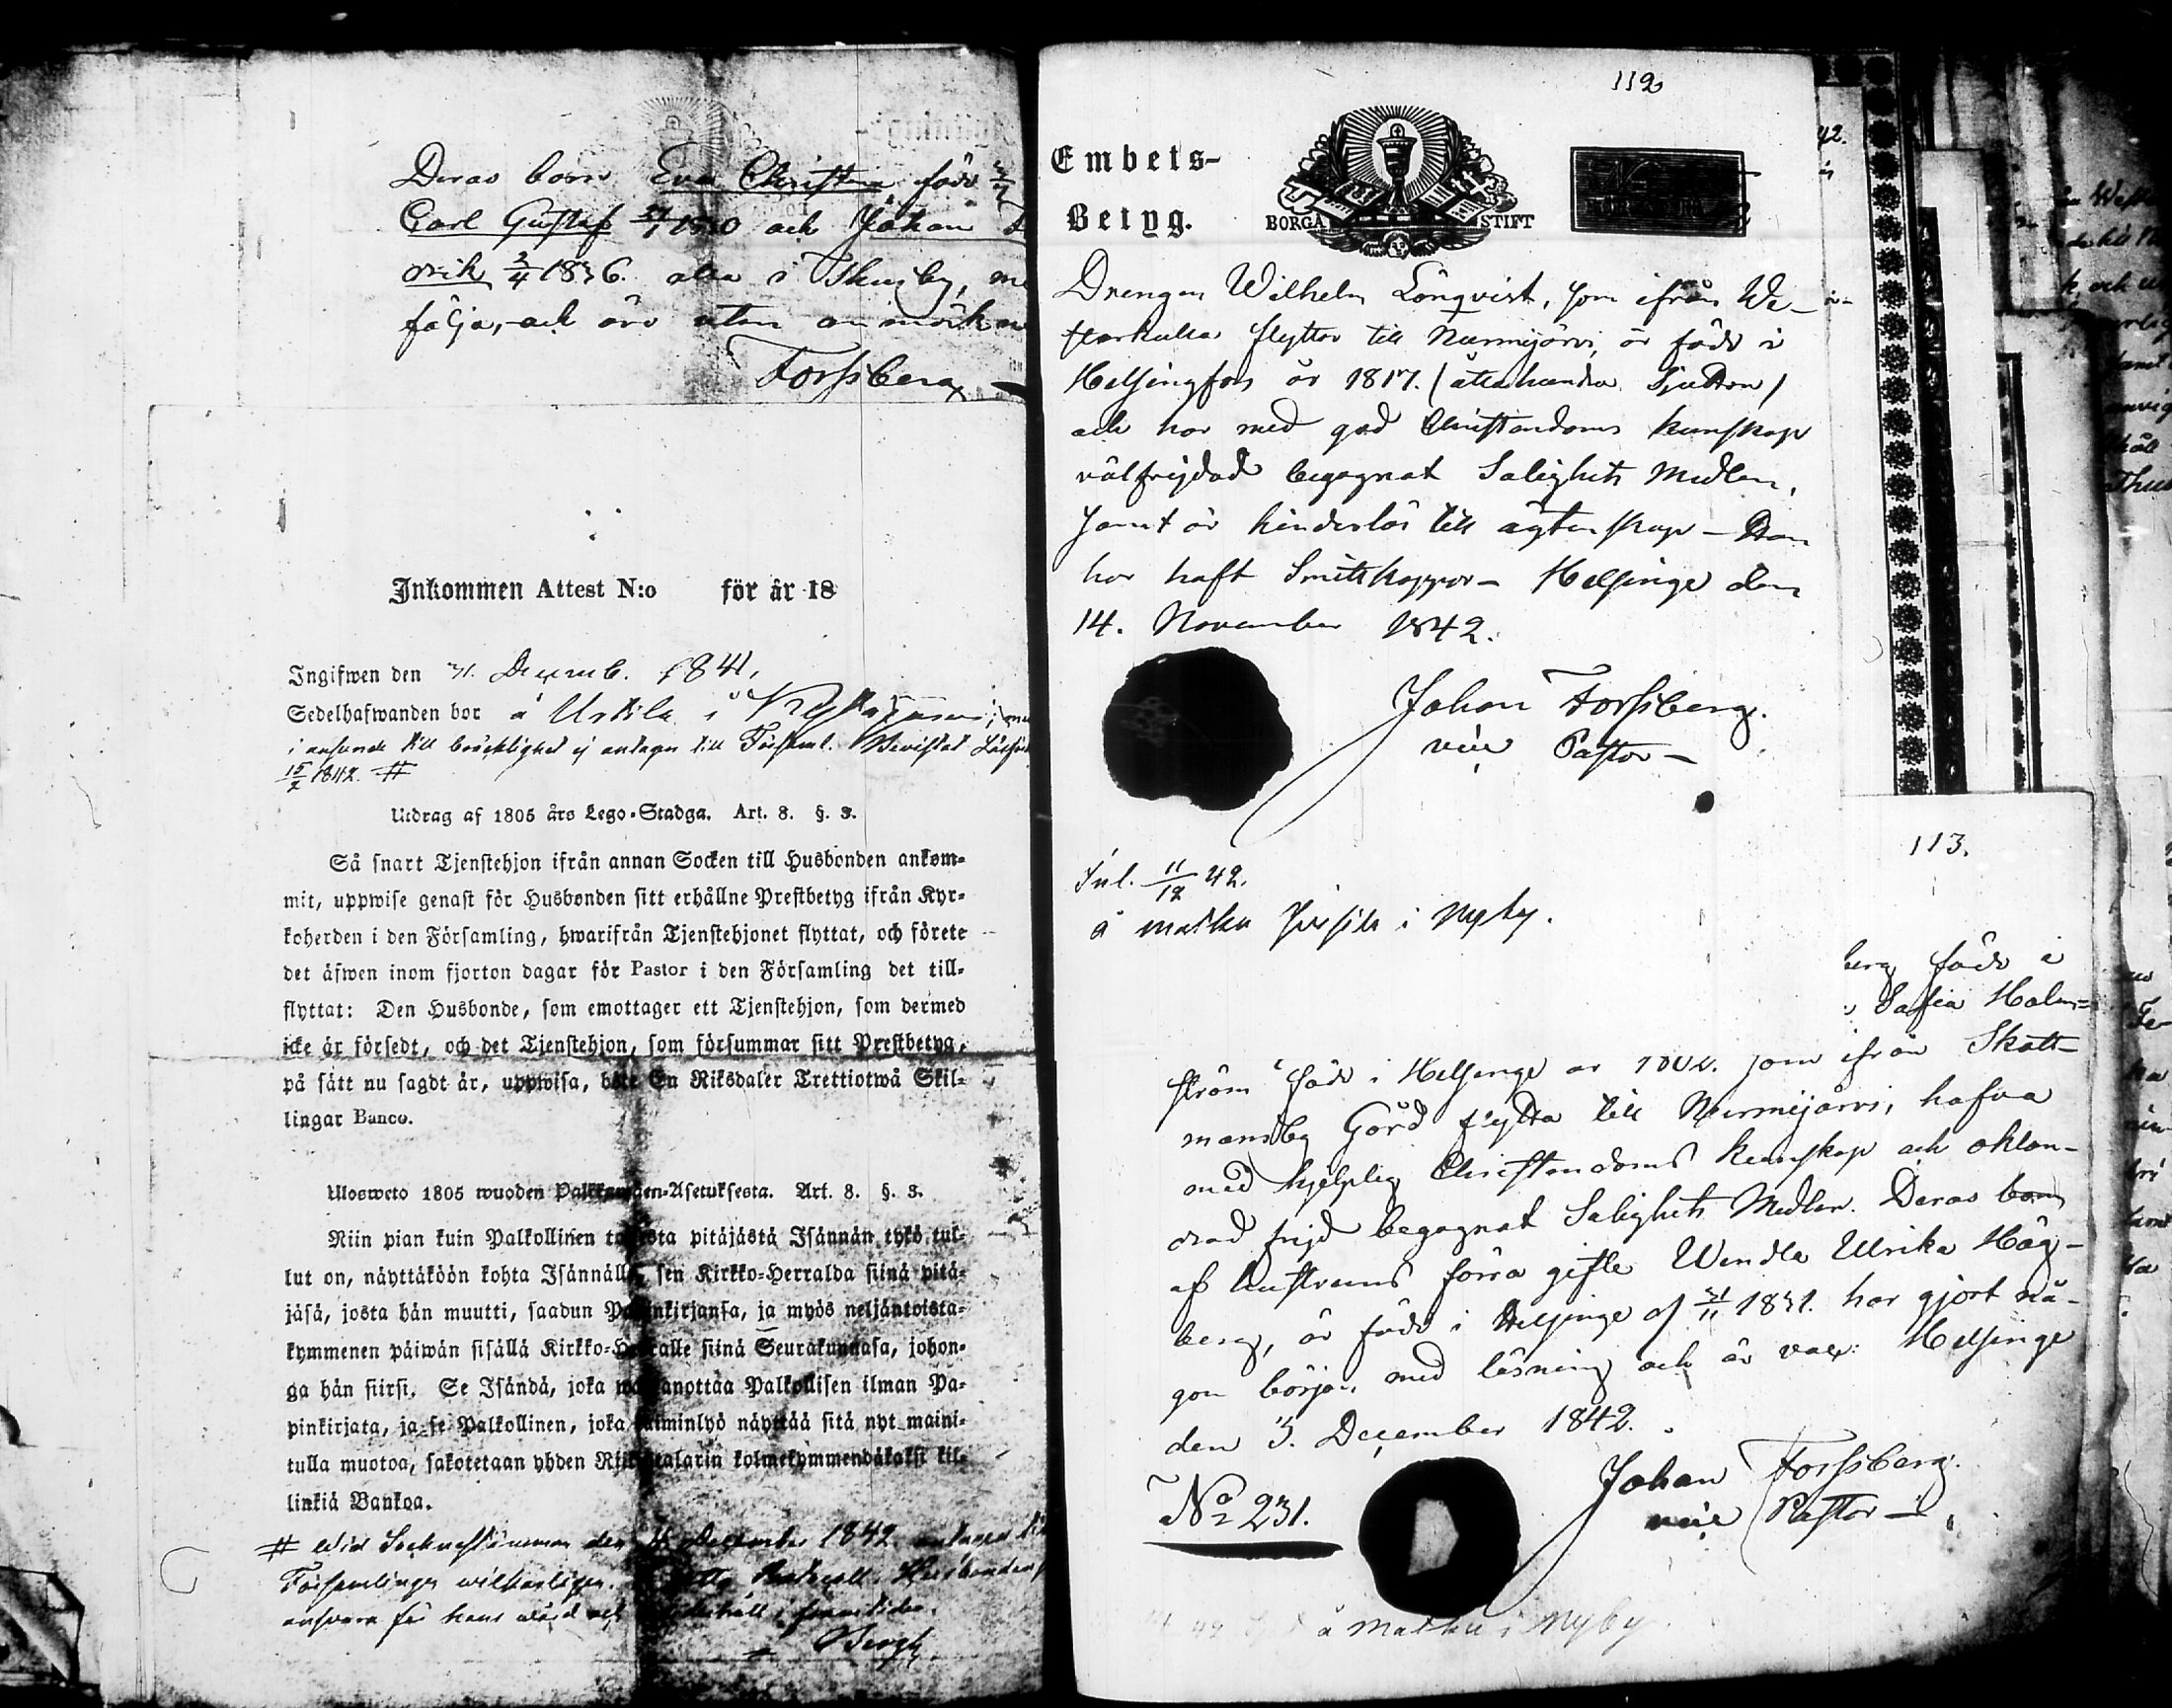 Deras barn Eva Christina född
Carl Gustaf och Johan
drik 3/4 1836. alla i
följa, och äro utan anmärkn
Forssberg
Inkommen Attest N:o för år 18
Ingifwen den 31. Decemb. 1841.
Sedelhafwanden bor å Urtila i
i anseende till bräcklighet ej antagen till Församl.
15/2 1842. #
Utdrag af 1805 års Lego-Stadga. Art. 8. §. 3.
Så snart Tjenstehjon ifrån annan Socken till Husbonden ankom-
mit, uppwise genast för Husbonden sitt erhållne Prestbetyg ifrån Kyr-
koherden i den Församling, hwarifrån Tjenstehjonet flyttat, och förete
det äfwen inom fjorton dagar för Pastor i den Församling det till-
flyttat: Den Husbonde, som emottager ett Tjenstehjon, som dermed
icke är försedt, och det Tjenstehjon, som försummar sitt Prestbetyg,
på sätt nu sagdt är, uppwisa, böte En Riksdaler Trettiotwå Skil-
lingar Banco.
Ulosweto 1805 wuoden Palkkausen-Asetuksesta. Art. 8. §. 3.
Niin pian kuin Palkollinen toisesta pitäjästä Isännän tykö tul-
lut on, näyttäköön kohta Isännällä sen Kirkko-Herralda siinä pitä-
jäsä, josta hän muutti, saadun Papinkirjansa, ja myös neljäntoista-
kymmenen päiwän sisällä Kirkko-Herralle siinä Seurakunnasa, johon-
ga hän siirsi. Se Isändä, joka wastanottaa Palkollisen ilman Pa-
pinkirjata, ja se Palkollinen, joka laiminlyö näyttää sitä nyt maini-
tulla muotoa, sakotetaan yhden Riikintalarin kolmekymmendäkaksi kil-
linkiä Bankoa.
# Wid Sockenstämman den December 1842 antagen
Församlingen Husbonden
ansvara för hans wård och i framtiden.
Bergh
112
Embets-
Betyg.
BORGÅ STIFT
Drengen Wilhelm Lönqvist, som ifrån We-
sterkulla flyttar till Nurmijärvi, är född i
Helsingfors år 1817. (adertonhundra Sjutton)
och har med god Christendoms kunskap
välfrejdad begagnat Salighets Medlen,
samt är hinderlös till ägtenskap – Han
har haft Smittkoppor – Helsinge den
14. November 1842.
Johan Forssberg.
vice Pastor –
Inl. 11/12 42.
å Matku i Nyby.
113.
berg född i
Sofia Holm=
ström född i Helsinge år som ifrån Skatt-
mansby Gård flytta till Nurmijärvi, hafva
med hjelplig Christendoms kunskap och oklan-
drad frejd begagnat Salighets Medlen. Deras barn
af förra gifte Wendla Ulrika Hög-
berg, är född i Helsinge 1831. har gjort nå-
gon början med läsning och är vacc: Helsinge
den 3. December 1842.
Johan Forssberg.
vice Pastor –
No 231.
å Matku i Nyby